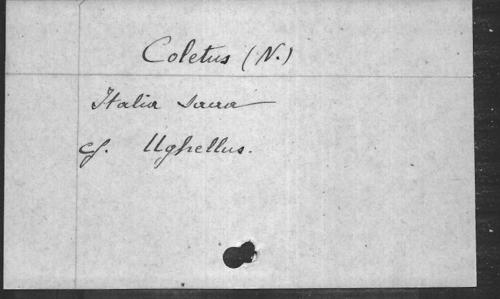 Coletus (N.)
Italia Sacra
cf. Ughellus.